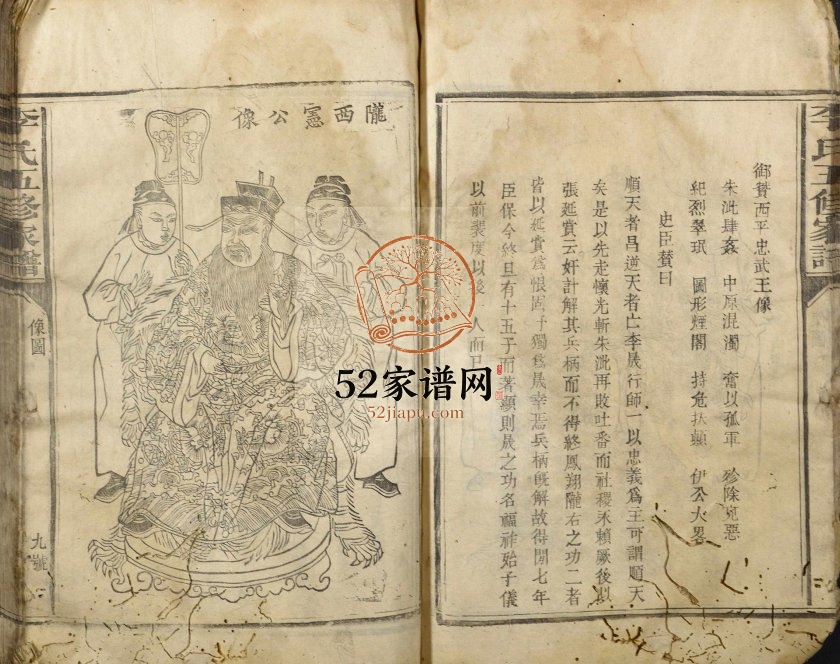 李氏五修家譜
御贊西平忠武王像
朱泚肆姦 中原混濁 奮以孤軍 殄除兇惡
紀烈翠珉 圖形煙閣 持危扶顛 伊公大畧
史臣贊曰
順天者昌逆天者亡李晟行師一以忠義爲主可謂順天
矣是以先走懷光斬朱泚再敗吐番而社稷永賴厥後以
張延賞云奸計解其兵柄而不得終鳳翔隴右之功二者
皆以延賞爲恨固子獨爲晟幸焉兵柄旣解故得閒七年
臣保今終旦有十五子而著顯則晟之功名福祚殆子儀
以前裴度以後 人而已
隴西憲公像
李氏五修家譜
像圖
九號
52家谱网
52jiapu.com